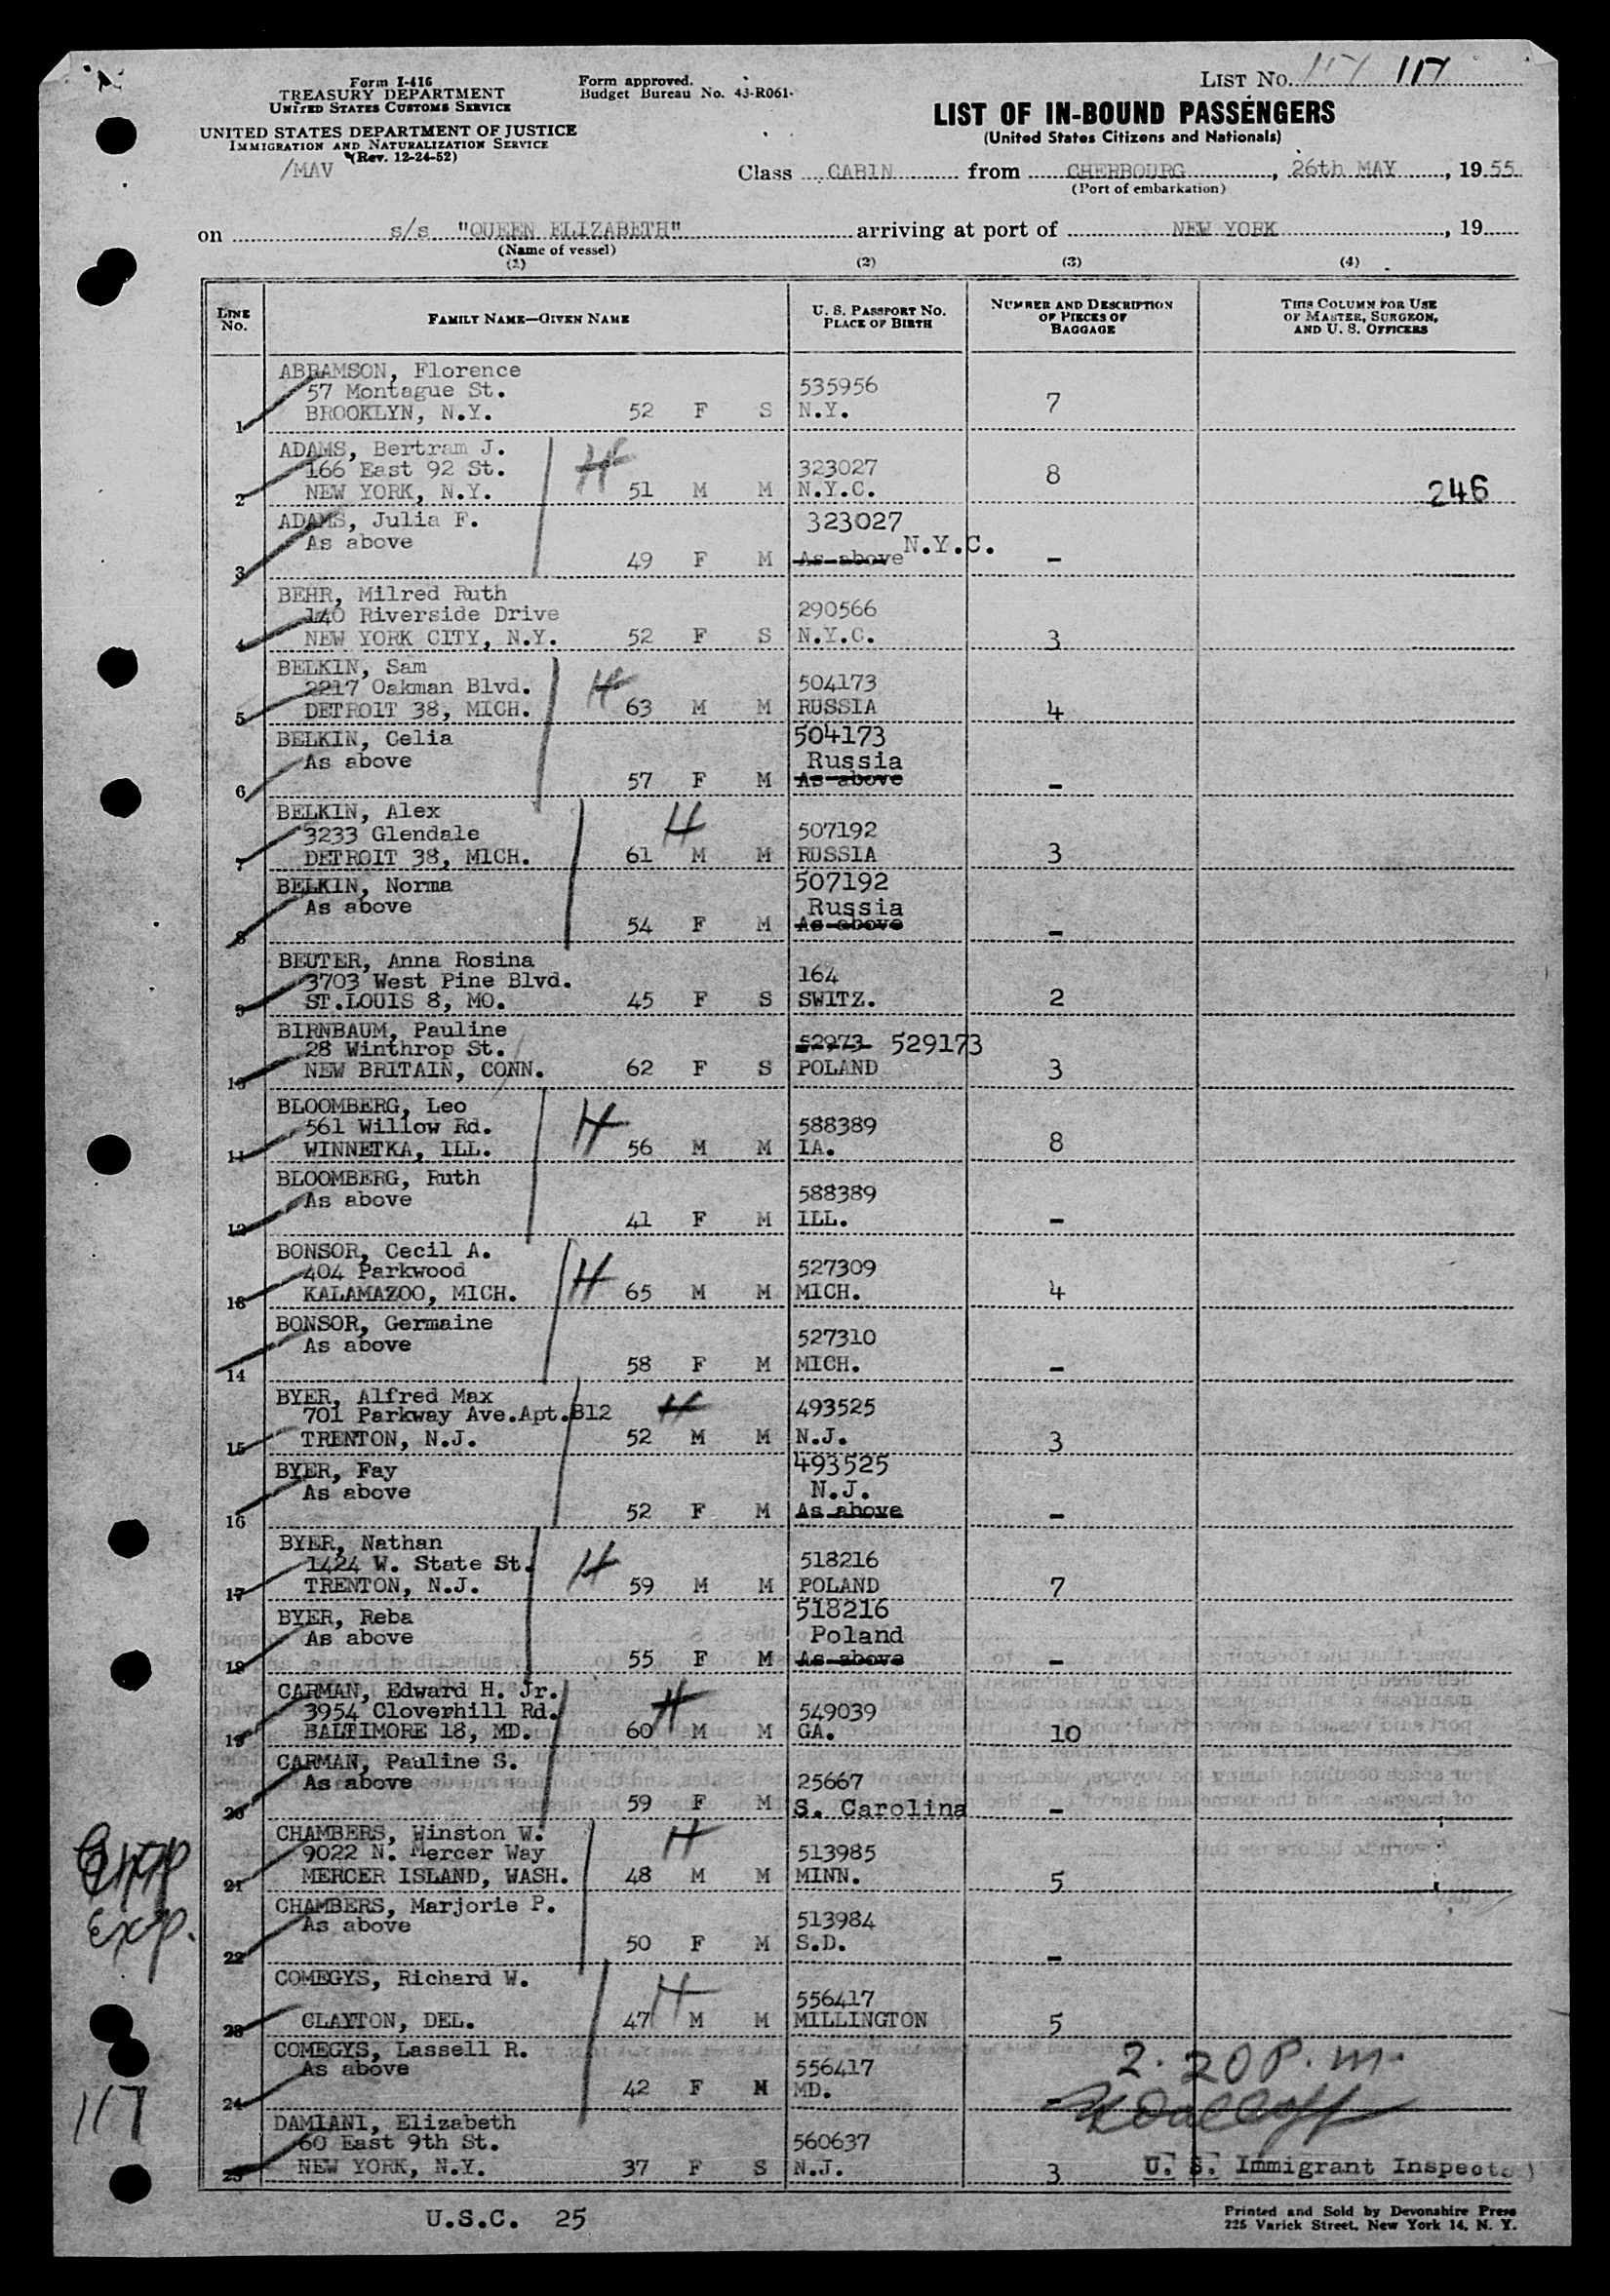 Form I-416
TREASURY DEPARTMENT
UNITED STATES CUSTOMS SERVICE
UNITED STATES DEPARTMENT OF JUSTICE
IMMIGRATION AND NATURALIZATION SERVICE
(Rev. 12-24-52)
/MAV
Form approved.
Budget Bureau No. 43-R061.
LIST NO. 117 117
LIST OF IN-BOUND PASSENGERS
(United States Citizens and Nationals)
Class CABIN from CHERBOURG, 26th MAY, 1955
(Port of embarkation)
on s/s "QUEEN ELIZABETH" arriving at port of NEW YORK, 19
(Name of vessel)
(1) (2) (3) (4)
LINE NO. FAMILY NAME—GIVEN NAME U. S. PASSPORT NO. PLACE OF BIRTH NUMBER AND DESCRIPTION OF PIECES OF BAGGAGE THIS COLUMN FOR USE OF MASTER, SURGEON, AND U. S. OFFICERS
ABRAMSON, Florence
57 Montague St. 535956
1 BROOKLYN, N.Y. 52 F S N.Y. 7
ADAMS, Bertram J. H
166 East 92 St. 323027 8
2 NEW YORK, N.Y. 51 M M N.Y.C. 246
ADAMS, Julia F. 323027
As above N.Y.C.
3 49 F M As above -
BEHR, Milred Ruth
140 Riverside Drive 290566
4 NEW YORK CITY, N.Y. 52 F S N.Y.C. 3
BELKIN, Sam H
2217 Oakman Blvd. 504173
5 DETROIT 38, MICH. 63 M M RUSSIA 4
BELKIN, Celia 504173
As above Russia
6 57 F M As above -
BELKIN, Alex H
3233 Glendale 507192
7 DETROIT 38, MICH. 61 M M RUSSIA 3
BELKIN, Norma 507192
As above Russia
8 54 F M As above -
BEUTER, Anna Rosina
3703 West Pine Blvd. 164
9 ST.LOUIS 8, MO. 45 F S SWITZ. 2
BIRNBAUM, Pauline
28 Winthrop St. 52973 529173
10 NEW BRITAIN, CONN. 62 F S POLAND 3
BLOOMBERG, Leo H
561 Willow Rd. 588389
11 WINNETKA, ILL. 56 M M IA. 8
BLOOMBERG, Ruth
As above 588389
12 41 F M ILL. -
BONSOR, Cecil A. H
404 Parkwood 527309
13 KALAMAZOO, MICH. 65 M M MICH. 4
BONSOR, Germaine
As above 527310
14 58 F M MICH. -
BYER, Alfred Max H
701 Parkway Ave.Apt.B12 493525
15 TRENTON, N.J. 52 M M N.J. 3
BYER, Fay 493525
As above N.J.
16 52 F M As above -
BYER, Nathan H
1424 W. State St. 518216
17 TRENTON, N.J. 59 M M POLAND 7
BYER, Reba 518216
As above Poland
18 55 F M As above -
CARMAN, Edward H. Jr. H
3954 Cloverhill Rd. 549039
19 BALTIMORE 18, MD. 60 M M GA. 10
CARMAN, Pauline S.
As above 25667
20 59 F M S. Carolina -
CHAMBERS, Winston W. H
9022 N. Mercer Way 513985
21 MERCER ISLAND, WASH. 48 M M MINN. 5
CHAMBERS, Marjorie P.
As above 513984
22 50 F M S.D. -
Exp.
COMEGYS, Richard W. H
556417
23 CLAYTON, DEL. 47 M M MILLINGTON 5
COMEGYS, Lassell R.
As above 556417
24 42 F M MD. -
2.20 P.m.
117
DAMIANI, Elizabeth
60 East 9th St. 560637
25 NEW YORK, N.Y. 37 F S N.J. 3
U. S. Immigrant Inspector
U.S.C. 25
Printed and Sold by Devonshire Press
225 Varick Street, New York 14, N. Y.